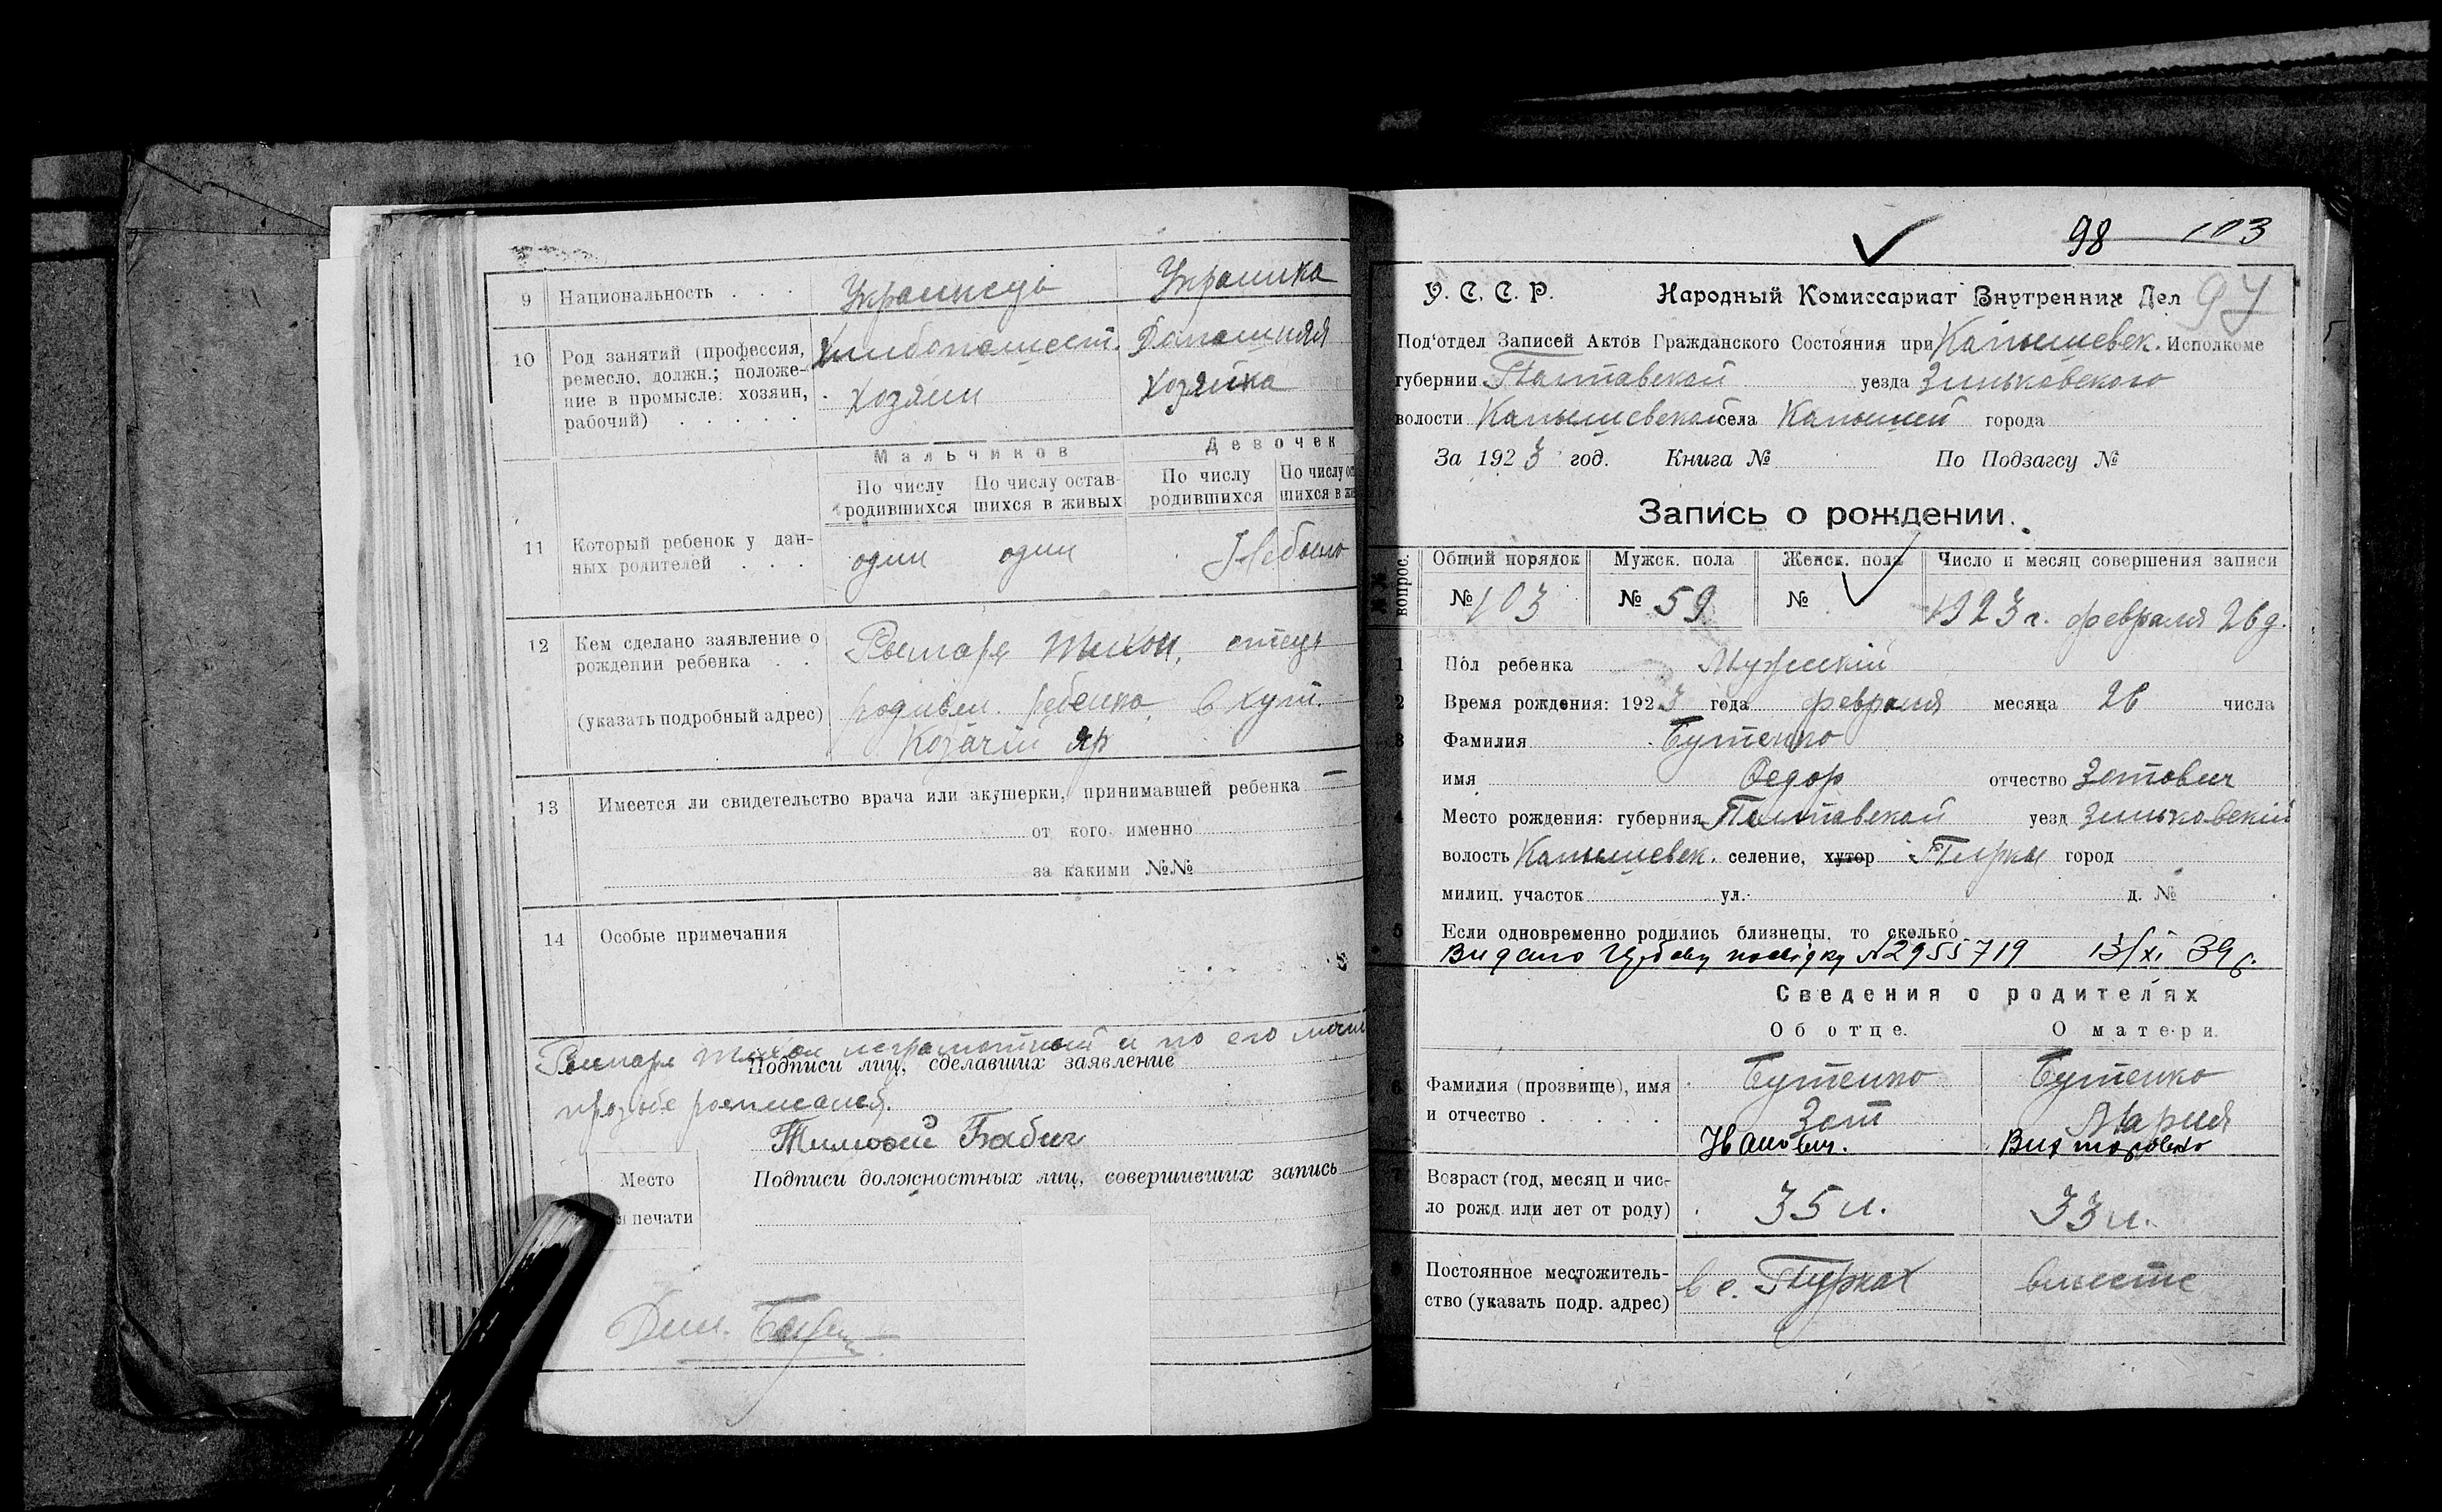 9 Национальность . . . Украинець Украинка
10 Род занятий (профессия, ремесло, должн.; положение в промысле: хозяин, рабочий) . . . . .
Хлибопашест. Домашняя
хозяин хозяйка
Мальчиков Девочек
По числу родившихся По числу оставшихся в живых По числу родившихся По числу
шихся в
11 Который ребенок у данных родителей . . . один один Небыло
12 Кем сделано заявление о рождении ребенка . . Рымарь Тихон, отець
(указать подробный адрес) родивш. ребенка, в хут.
Козачий Яр
13 Имеется ли свидетельство врача или акушерки, принимавшей ребенка —
от кого именно
за какими №№
14 Особые примечания
Рымарь Тихон неграмотный и по его личн
Подписи лиц, сделавших заявление
прозьбе росписался.
Тимофей Бабич
Место
печати
Подписи должностных лиц, совершивших запись
98 103
97
У. С. С. Р. Народный Комиссариат Внутренних Дел
Под'отдел Записей Актов Гражданского Состояния при Капышевск. Исполкоме
губернии Полтавской уезда Зиньковского
волости Капышевской села Капышей города
За 1923 год. Книга № По Подзагсу №
Запись о рождении.
№№ вопрос. Общий порядок Мужск. пола Женск. пола Число и месяц совершения записи
№ 103 № 59 № 1923 г. февраля 26 д.
1 Пол ребенка Мужский
2 Время рождения: 1923 года февраля месяца 26 числа
3 Фамилия Бутенко
имя Федор отчество Зотович
4 Место рождения: губерния Полтавской уезд Зиньковский
волость Капышевск. селение, хутор Пирки город
милиц. участок ул. д. №
5 Если одновременно родились близнецы, то сколько
Видано посвідку №2955719 13/XI 39 р.
Сведения о родителях
Об отце. О матери.
6 Фамилия (прозвище), имя Бутенко Бутенко
и отчество . . . . Зот Мария
Иванович. Викторовна
7 Возраст (год, месяц и число рожд. или лет от роду) 35 л. 33 л.
8 Постоянное местожительство (указать подр. адрес) в с. Пирках вместе